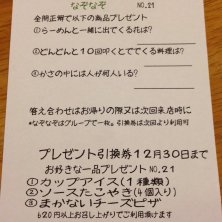 なぞなぞ NO.21
全問正解で以下の商品プレゼント
①らーめんと一緒に出てくる花は?
②どんどんと10回叩くとでてくる料理は?
③かさの中には人が何人いる?
答え合わせはお帰りの際又は次回来店時に
*なぞなぞはグループで一枚。引換券は次回より利用可
プレゼント引換券12月30日まで
お好きな一品プレゼント NO.21
①カップアイス(1種類)
②ソースたこやき(4個入り)
③まかないチーズピザ
620円以上お召し上がりでご利用頂けます